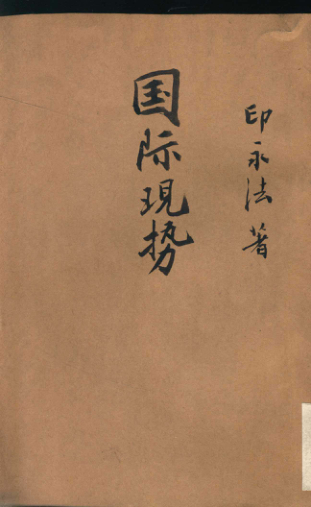 国际现势
印永法著